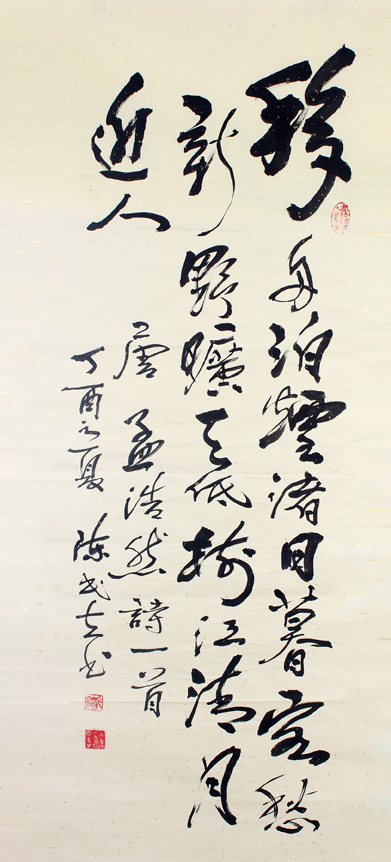 移舟泊煙渚日暮客愁
新野曠天低樹江清月
近人
唐孟浩然詩一首
丁酉之夏陈书